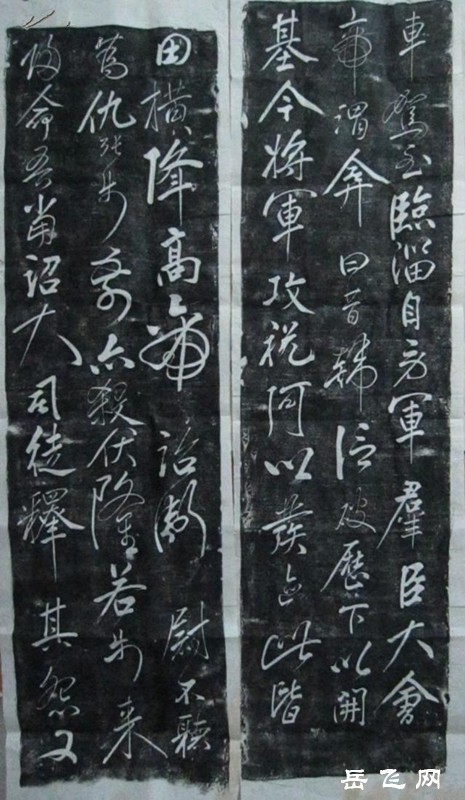 車駕至臨淄自勞軍羣臣大會
帝謂弇曰昔韓信破歷下以開
基今將軍攻祝阿以發迹此皆
田橫降高帝詔衛尉不聽
為仇張步前亦殺伏隆若步来
歸命吾當詔大司徒釋其怨又
岳飞网